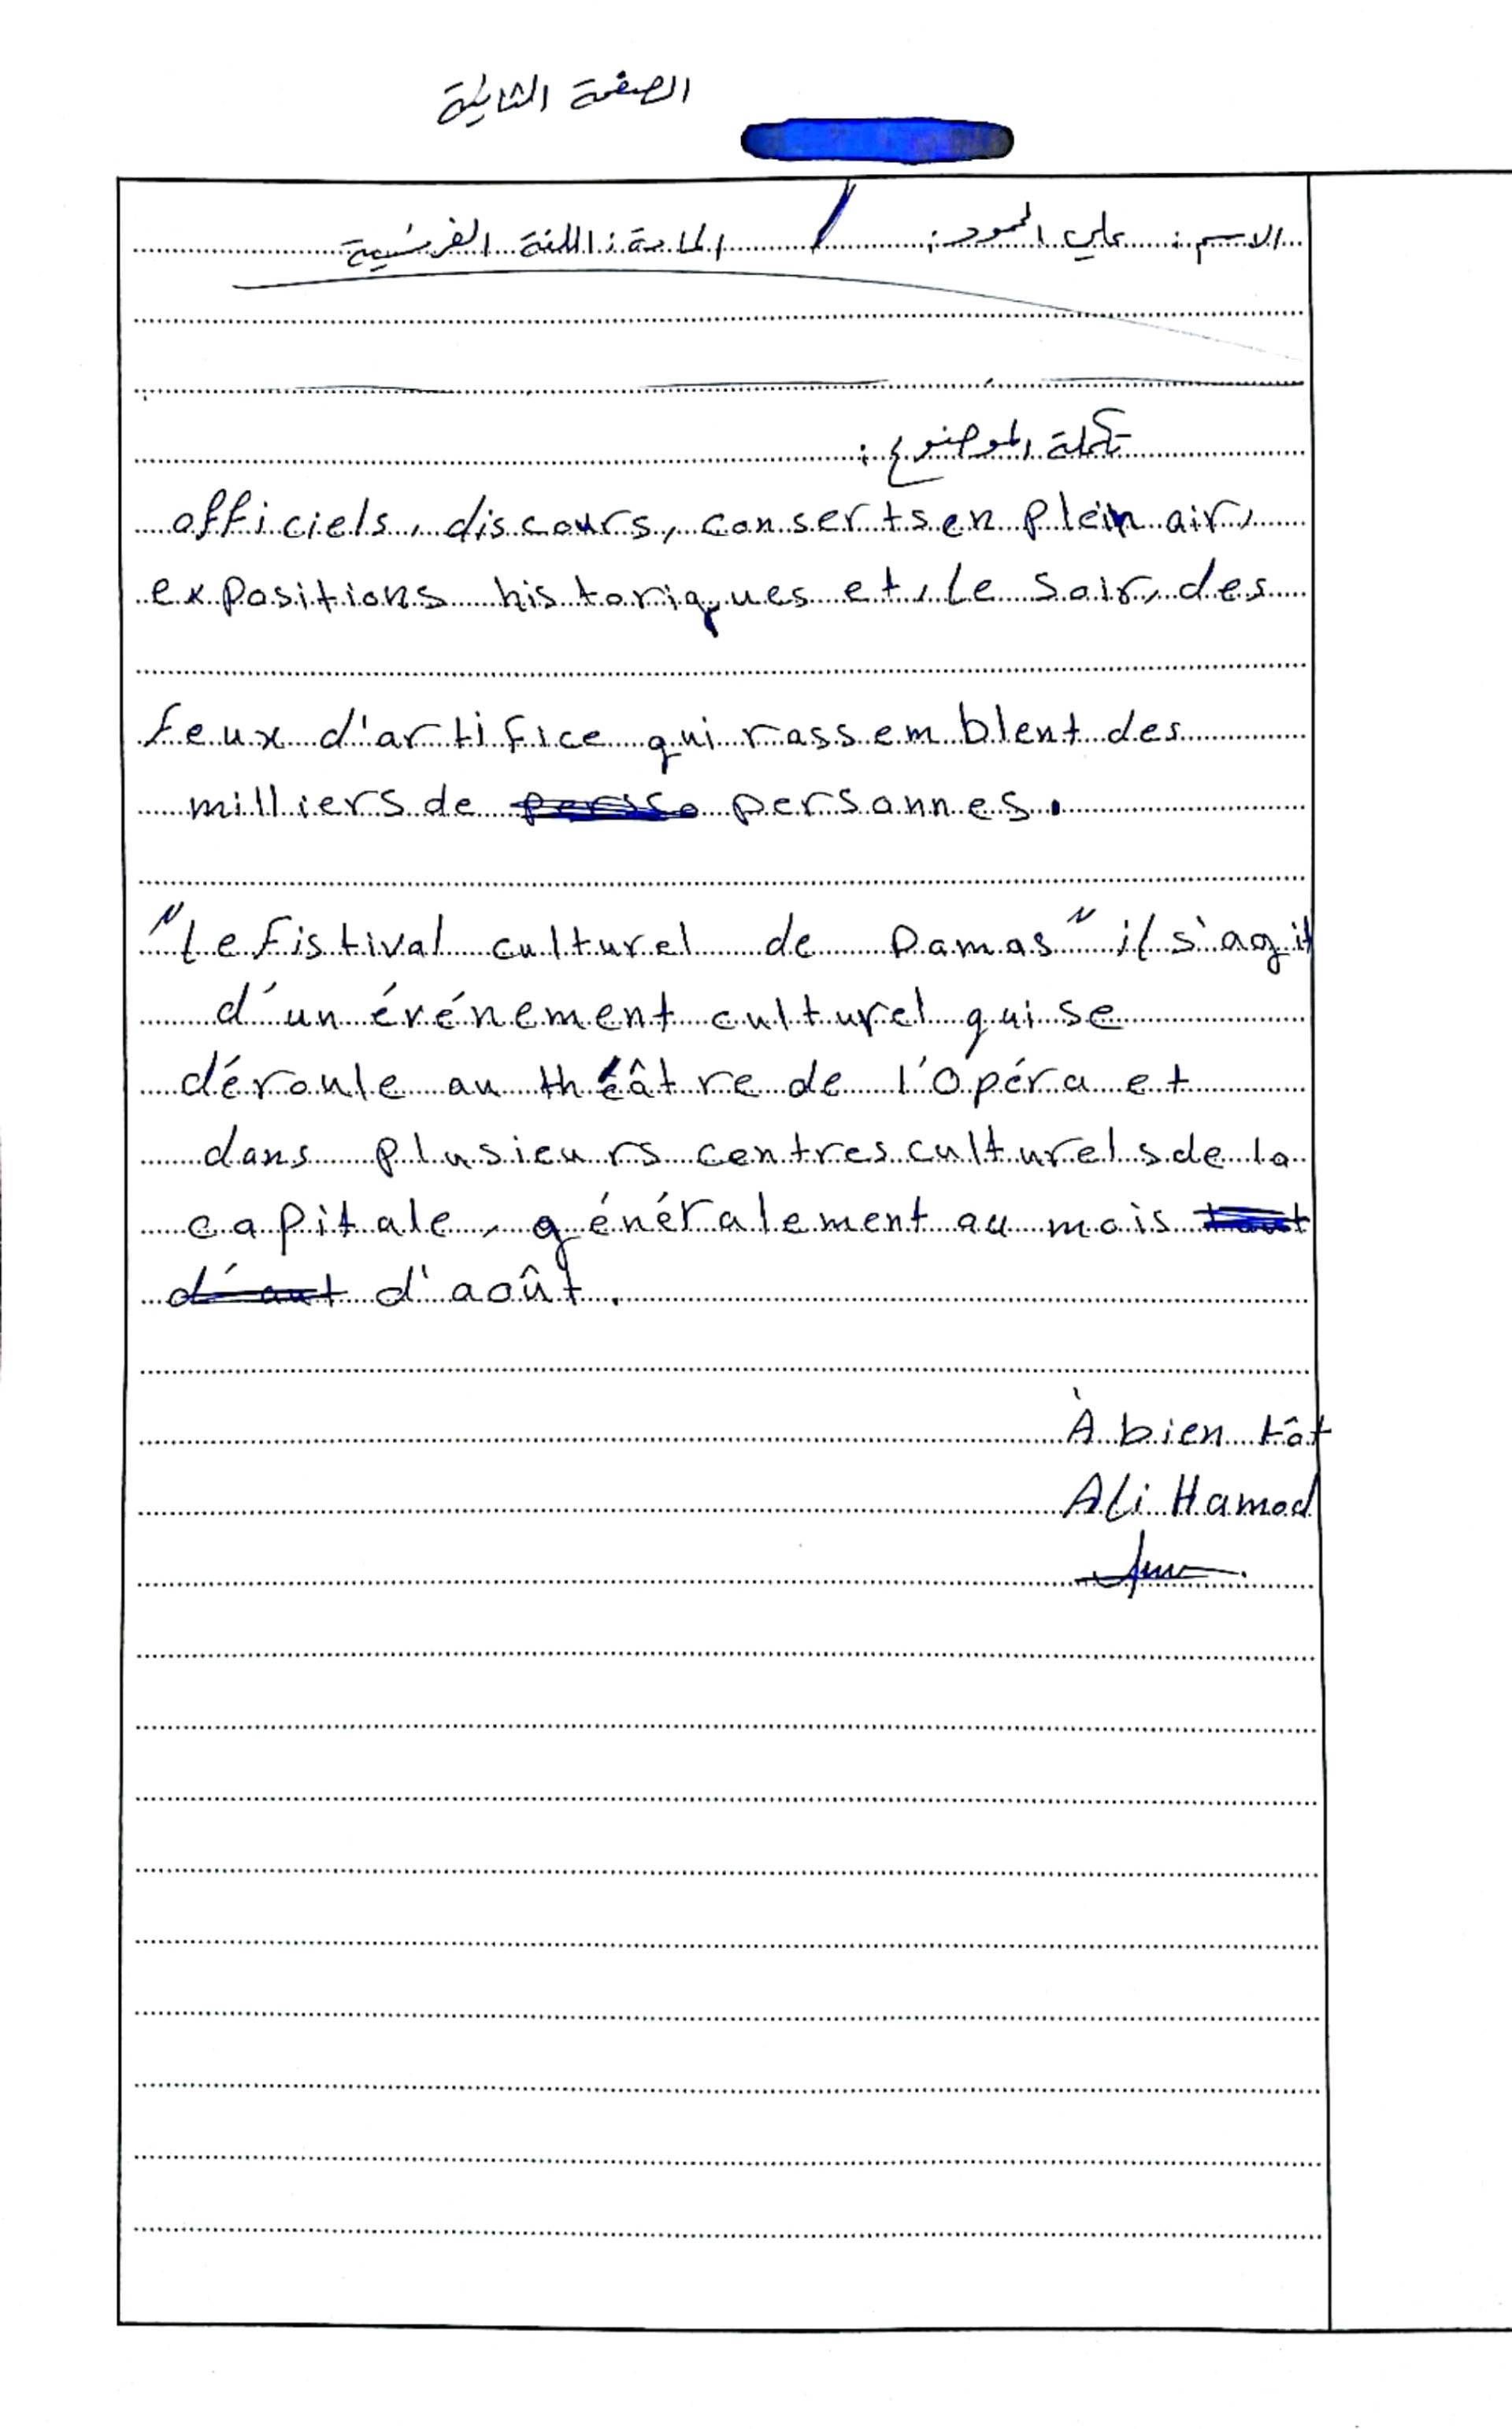 الصفحة الثانية
الاسم: علي الحمود: / المادة: اللغة الفرنسية
تكملة الموضوع:
officiels, discours, conserts en plein air,
expositions historiques et, le soir, des
feux d'artifice qui rassemblent des
milliers de personnes.
"Le fistival culturel de Damas" il s'agit
d'un événement culturel qui se
déroule au théâtre de l'Opéra et
dans plusieurs centres culturels de la
capitale, généralement au mois
d'août.
À bien tôt
Ali Hamod